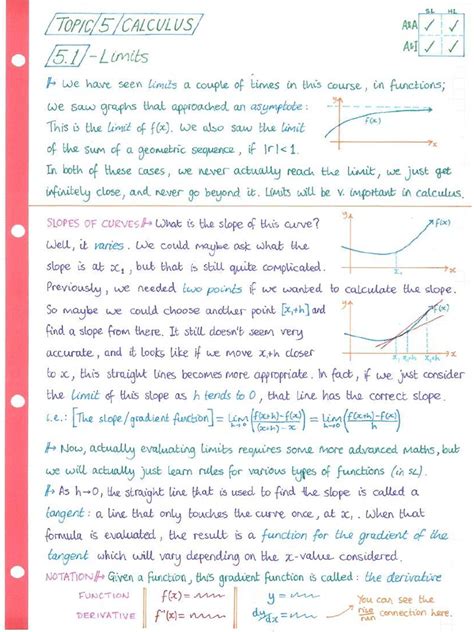 TOPIC 5 CALCULUS
SL HL
A&A ✓ ✓
A&I ✓ ✓
5.1 - Limits
We have seen limits a couple of times in this course, in functions;
we saw graphs that approached an asymptote:
This is the limit of f(x). We also saw the limit
of the sum of a geometric sequence, if |r|<1.
y
f(x)
x
In both of these cases, we never actually reach the limit, we just get
infinitely close, and never go beyond it. Limits will be v. important in calculus.
SLOPES OF CURVES What is the slope of this curve?
Well, it varies. We could maybe ask what the
slope is at x₁, but that is still quite complicated.
Previously, we needed two points if we wanted to calculate the slope.
y
f(x)
x₁
x
So maybe we could choose another point [x₁+h] and
find a slope from there. It still doesn't seem very
accurate, and it looks like if we move x₁+h closer
y
f(x)
x₁ x₁+h
x
to x, this straight lines becomes more appropriate. In fact, if we just consider
the limit of this slope as h tends to 0, that line has the correct slope.
i.e.: [The slope/gradient function] = lim h→0 (f(x+h)-f(x) / (x+h)-x) = lim h→0 (f(x+h)-f(x) / h)
Now, actually evaluating limits requires some more advanced maths, but
we will actually just learn rules for various types of functions (in SL).
As h→0, the straight line that is used to find the slope is called a
tangent: a line that only touches the curve once, at x₁. When that
formula is evaluated, the result is a function for the gradient of the
tangent which will vary depending on the x-value considered.
NOTATION Given a function, this gradient function is called: the derivative
FUNCTION f(x)= y=
DERIVATIVE f'(x)= dy/dx =
You can see the
rise/run connection here.